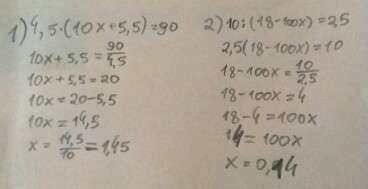 1) 4,5·(10x+5,5)=90
10x+5,5=90/4,5
10x+5,5=20
10x=20-5,5
10x=14,5
x=14,5/10=1,45
2) 10:(18-100x)=25
2,5(18-100x)=10
18-100x=10/2,5
18-100x=4
18-4=100x
14=100x
x=0,14